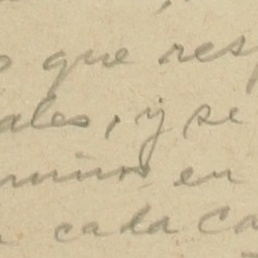 que res
ales, y se
minos en
cada ca